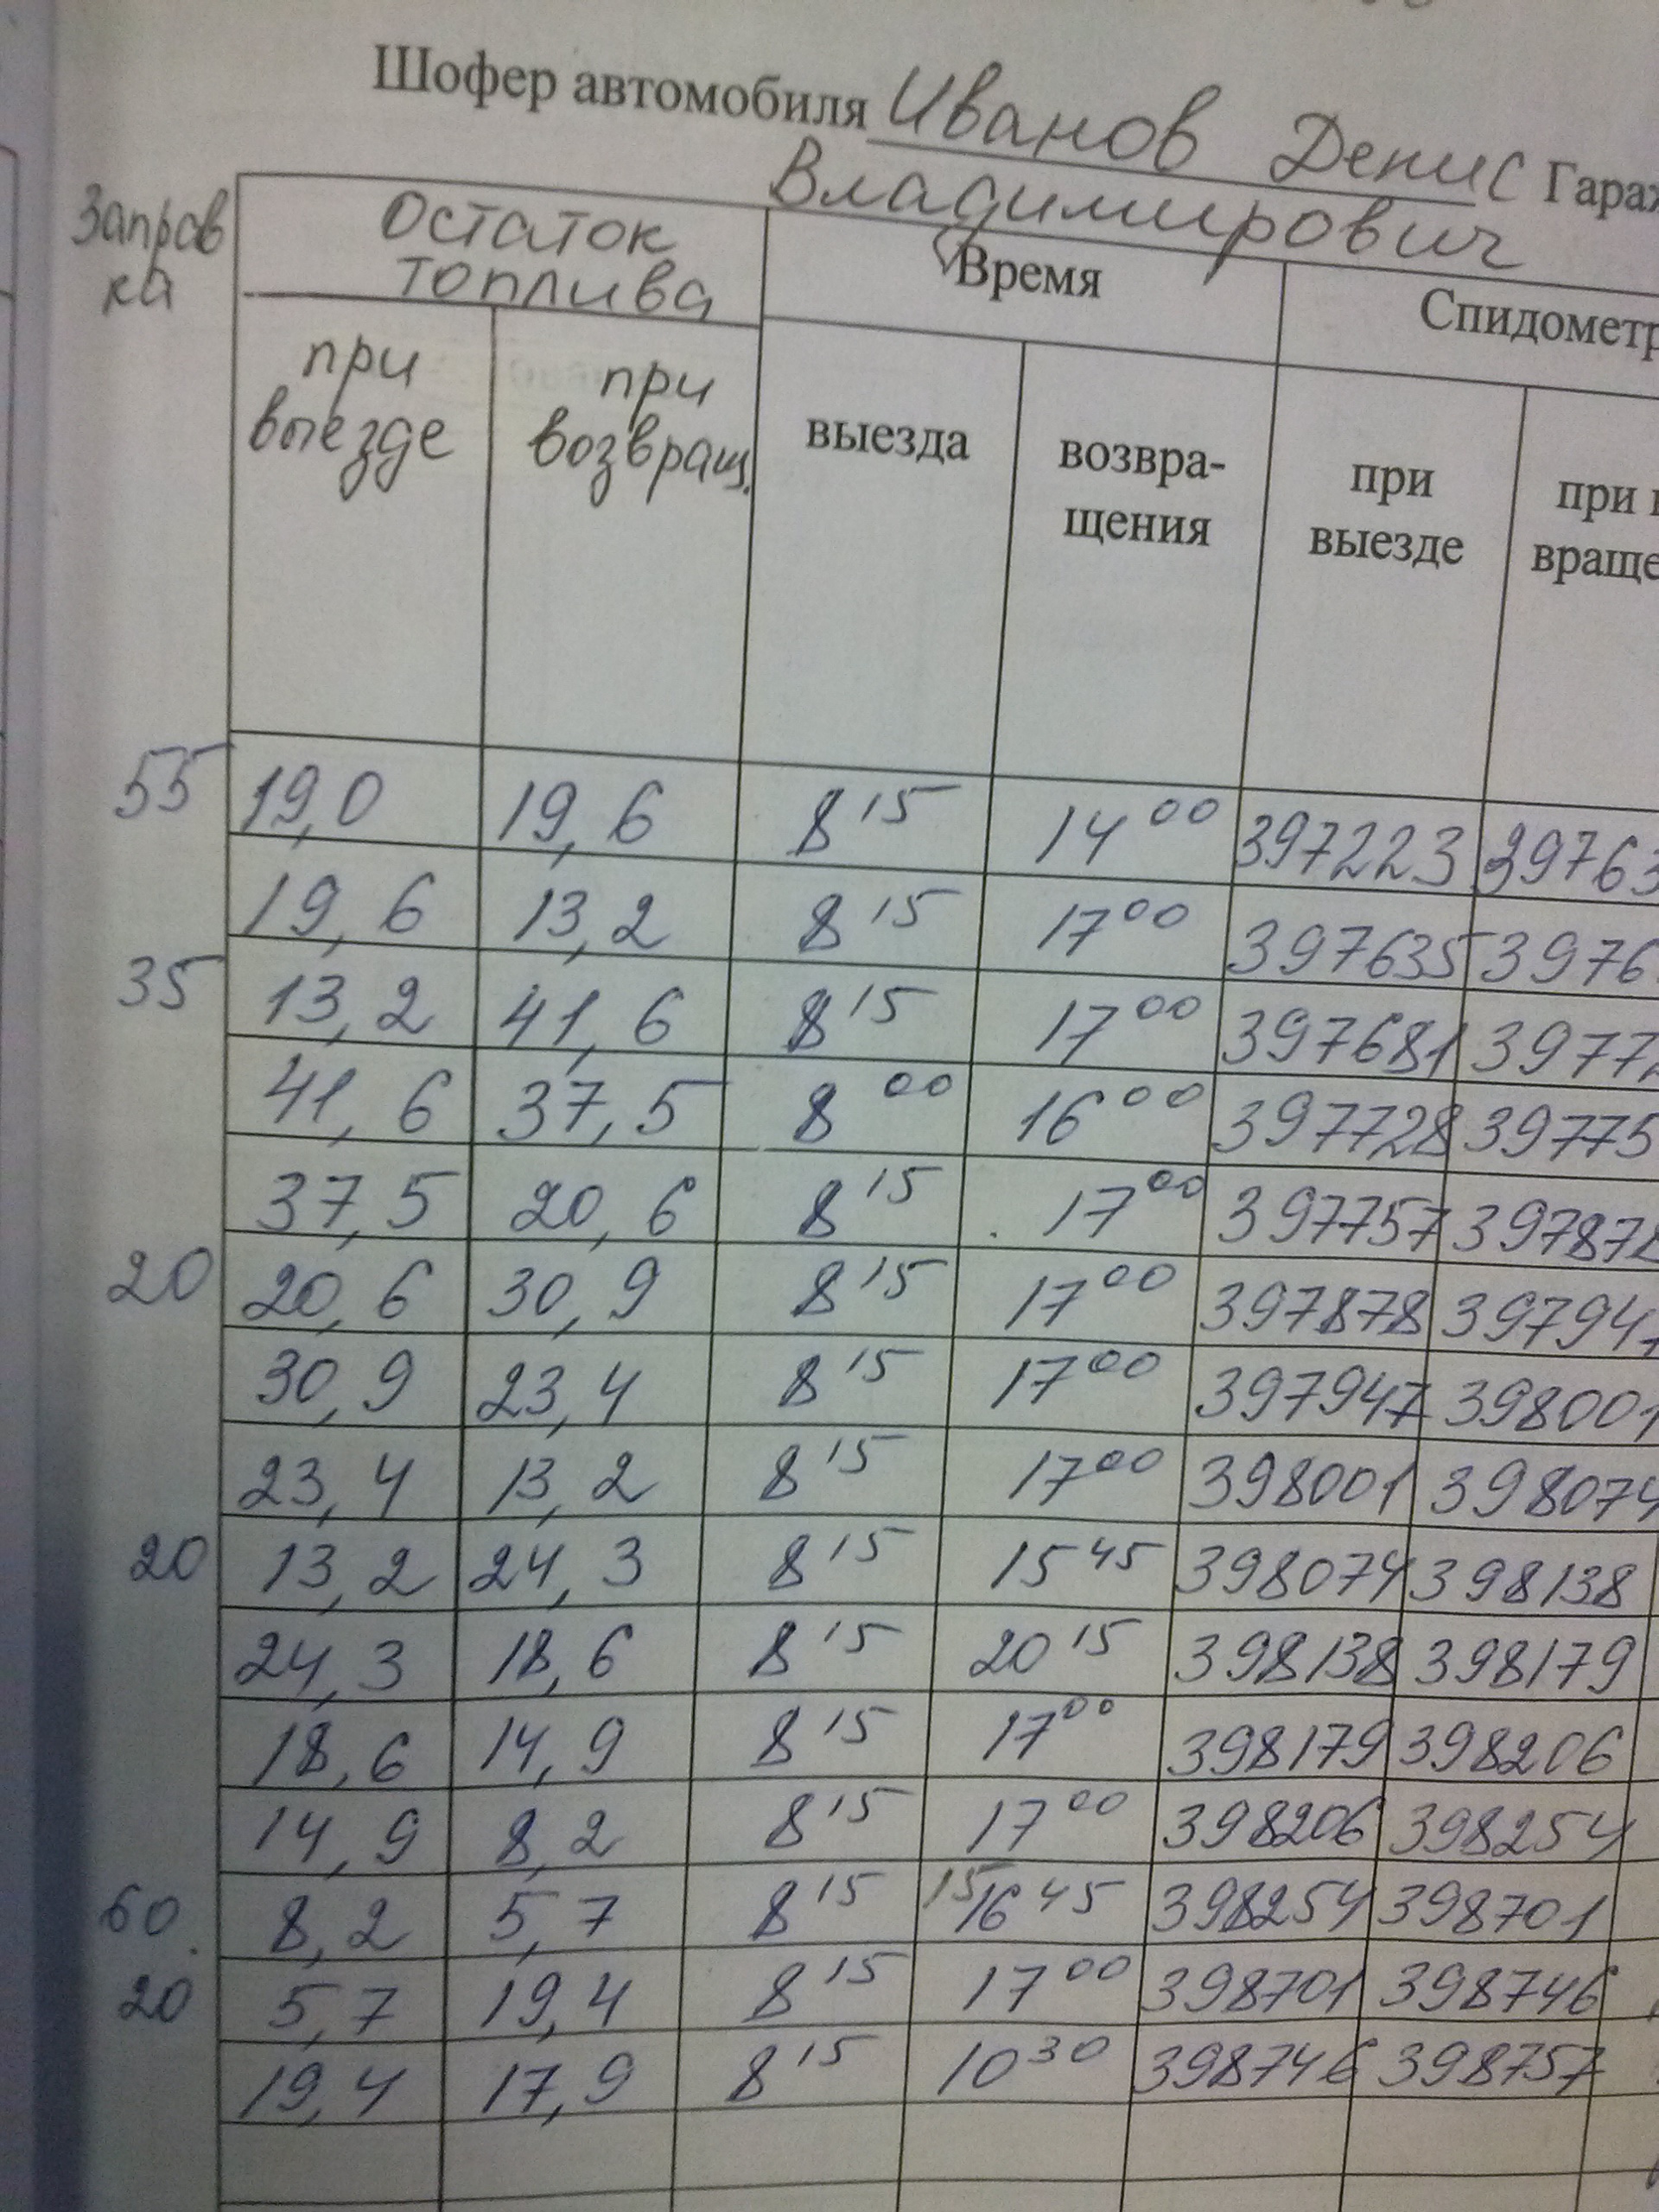 Шофер автомобиля Иванов Денис Гараж
Владимирович
Заправ
ка
Остаток
топлива
Время
Спидометр
при
выезде
при
возвращ.
выезда
возвра-
щения
при
выезде
при
враще
55 19,0 19,6 8 15 14 00 397223 39763
19,6 13,2 8 15 17 00 397635 3976
35 13,2 41,6 8 15 17 00 397681 39772
41,6 37,5 8 00 16 00 397728 39775
37,5 20,6 8 15 17 00 397757 397878
20 20,6 30,9 8 15 17 00 397878 39794
30,9 23,4 8 15 17 00 397947 398001
23,4 13,2 8 15 17 00 398001 398074
20 13,2 24,3 8 15 15 45 398074 398138
24,3 18,6 8 15 20 15 398138 398179
18,6 14,9 8 15 17 00 398179 398206
14,9 8,2 8 15 17 00 398206 398254
60 8,2 5,7 8 15 15 16 45 398254 398701
20 5,7 19,4 8 15 17 00 398701 398746
19,4 17,9 8 15 10 30 398746 398757